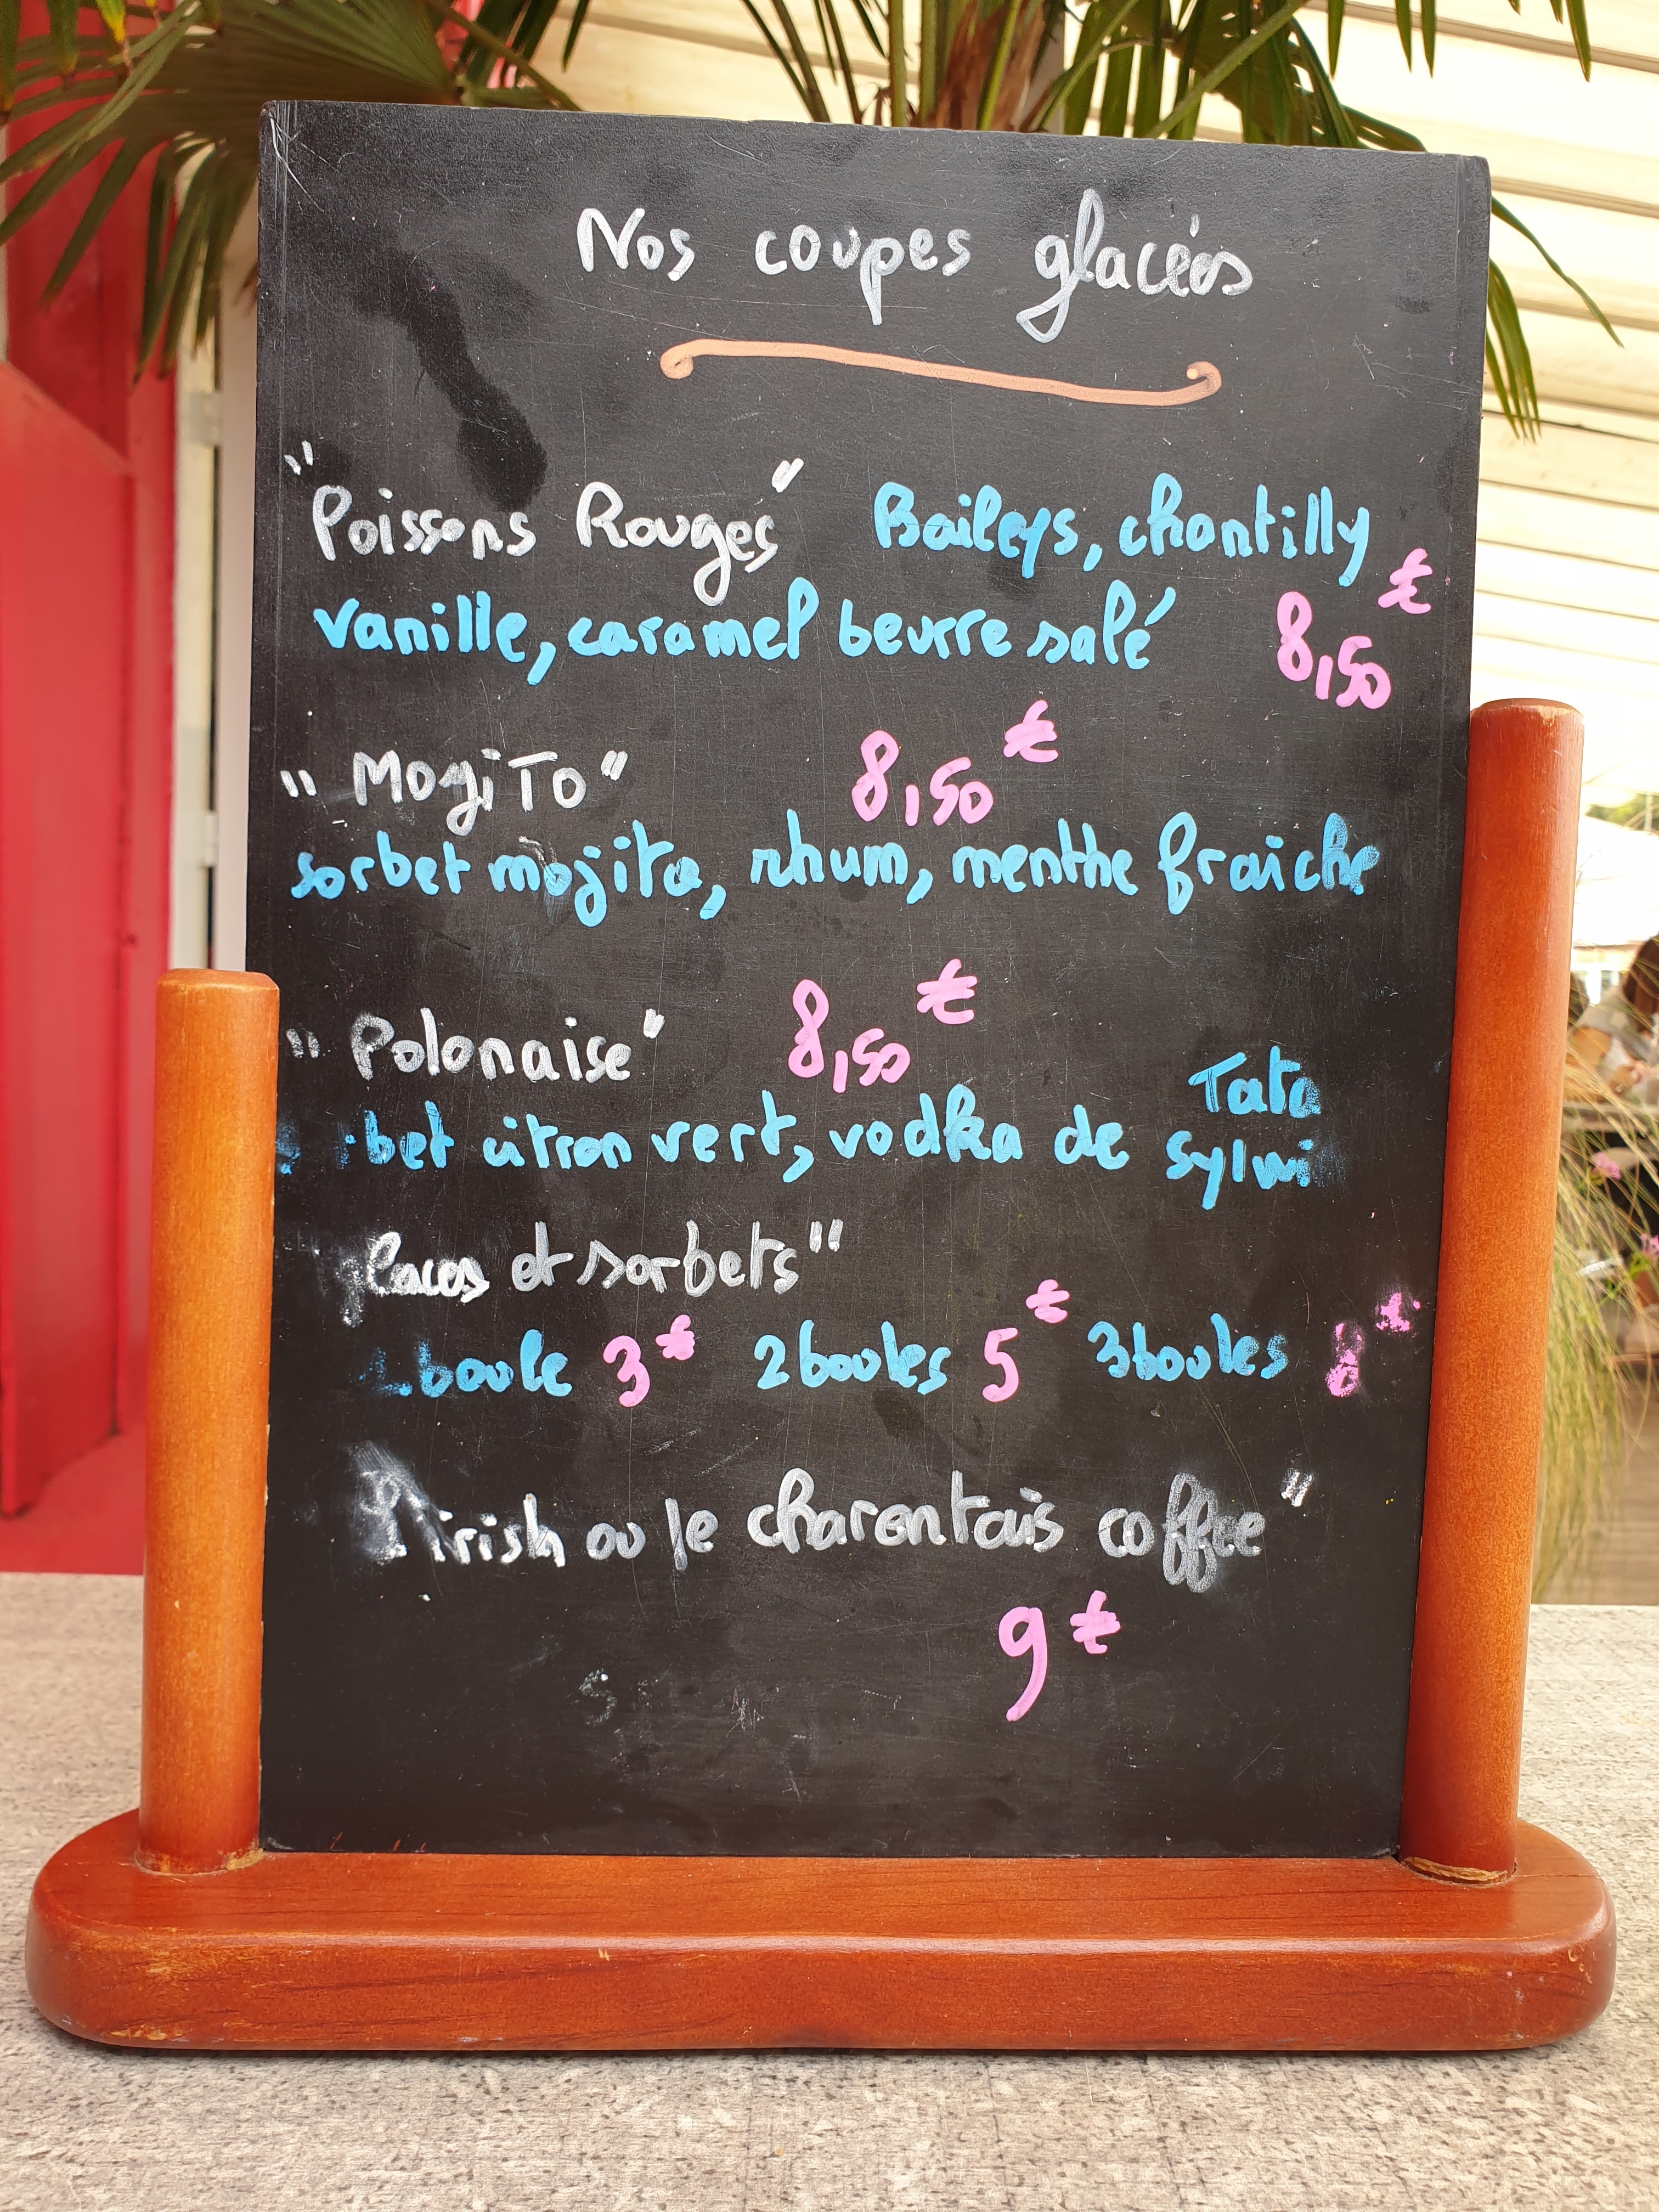 Nos coupes glacées
"Poissons Rouges" Baileys, chantilly
vanille, caramel beurre salé 8,50 €
"MojiTo" 8,50 €
sorbet mojito, rhum, menthe fraiche
"Polonaise" 8,50 €
bet citron vert, vodka de Tata
Sylwi
glaces et sorbets"
1 boule 3 € 2 boules 5 € 3 boules 8 €
irish ou le charentais coffee"
9 €